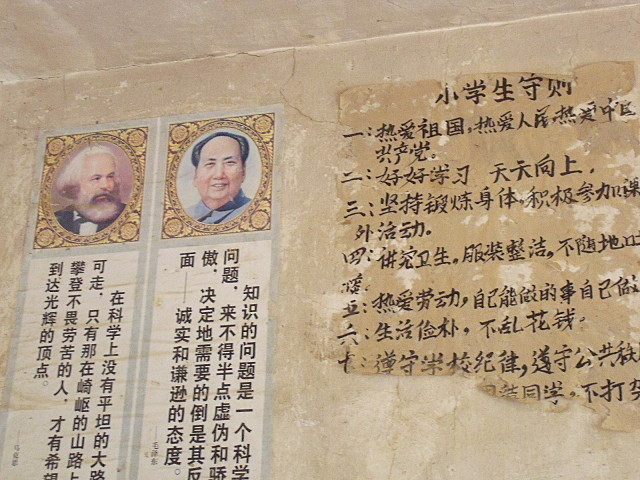 小学生守则
一：热爱祖国，热爱人民，热爱中国
共产党。
二：好好学习 天天向上．
三：坚持锻炼身体，积极参加课
外活动。
四：讲究卫生，服装整洁，不随地吐
痰。
五：热爱劳动，自己能做的事自己做
六：生活俭朴，不乱花钱。
七：遵守学校纪律，遵守公共秩
团结同学，不打架
知识的问题是一个科学
问题，来不得半点虚伪和骄
傲，决定地需要的倒是其反
面——诚实和谦逊的态度。
——毛泽东
在科学上没有平坦的大路
可走，只有那在崎岖的山路上
攀登不畏劳苦的人，才有希望
到达光辉的顶点。
——马克思